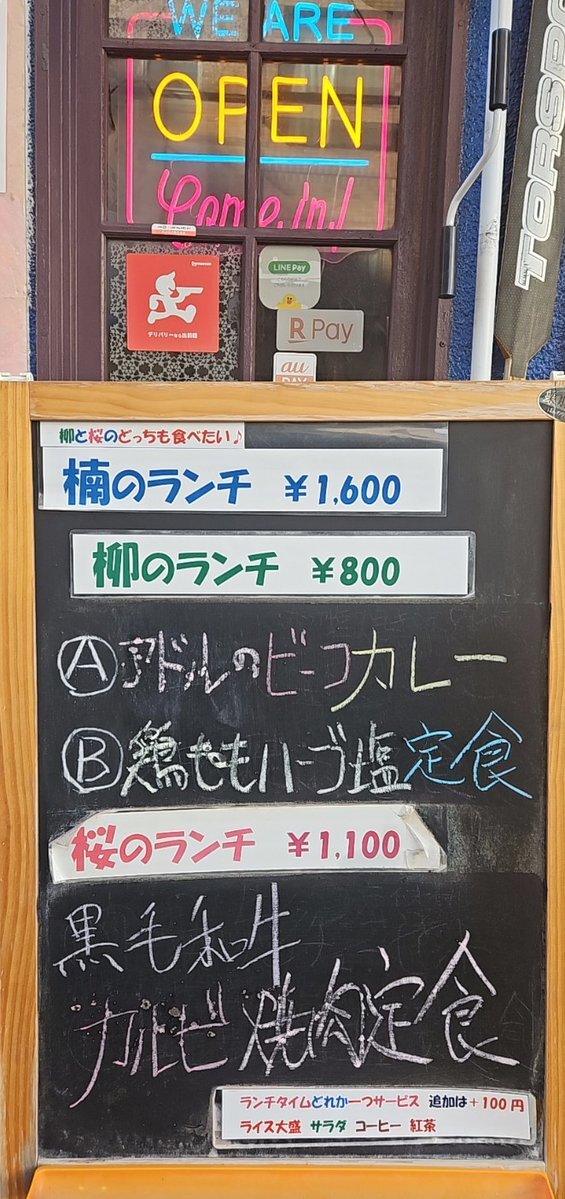 WE ARE
OPEN
Come in!
デリバリーなら出前館
LINE Pay
R Pay
au PAY
TORSPO
柳と桜のどっちも食べたい♪
楠のランチ ￥1,600
柳のランチ ￥800
Ⓐアドルのビーコカレー
Ⓑ鶏ももハーブ塩定食
桜のランチ ￥1,100
黒毛和牛
カルビ焼肉定食
ランチタイムどれか一つサービス 追加は+100円
ライス大盛 サラダ コーヒー 紅茶